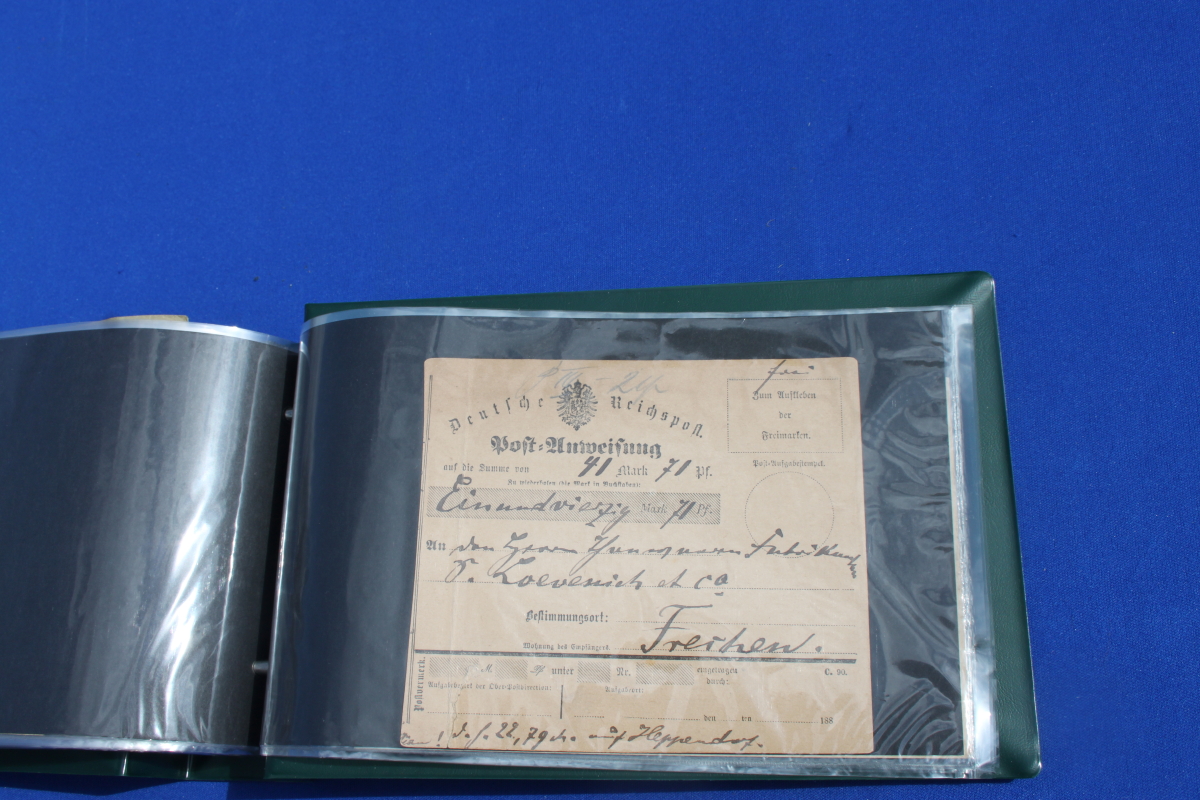 frei
Deutsche Reichspost.
Zum Aufkleben
der
Freimarken.
Post-Anweisung
auf die Summe von 41 Mark 71 Pf.
Zu wiederholen (die Mark in Buchstaben):
Post-Aufgabestempel.
Einundvierzig Mark 71 Pf.
An den Herrn Thonwaren Fabrikanten
S. Loevenich et Co
Bestimmungsort:
Frechen.
Wohnung des Empfängers
Postvermerk.
M. Pf unter Nr. eingetragen durch: C. 90.
Aufgabebezirk der Ober-Postdirection: Aufgabeort:
den ten 188
22,79 auf Heppendorf.